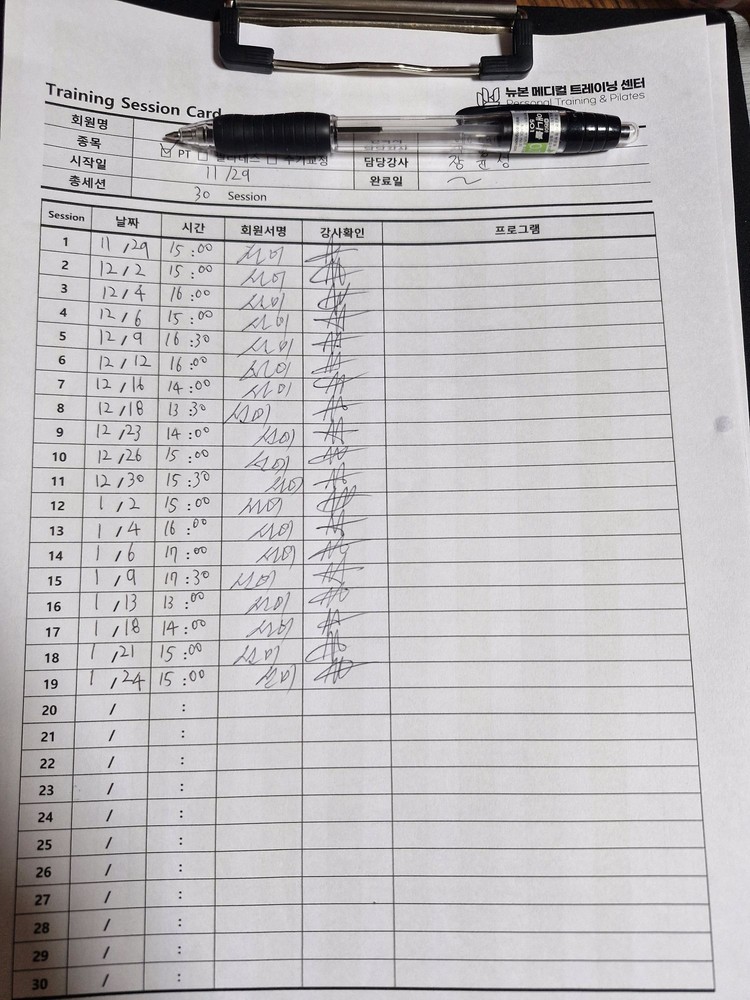 Training Session Card
뉴본 메디컬 트레이닝 센터
Personal Training & Pilates
회원명
종목 PT
시작일 11/29 담당강사 장윤성
총세션 30 Session 완료일 ~
Session 날짜 시간 회원서명 강사확인 프로그램
1 11/29 15:00
2 12/2 15:00
3 12/4 16:00
4 12/6 15:00
5 12/9 16:30
6 12/12 16:00
7 12/16 14:00
8 12/18 13:30
9 12/23 14:00
10 12/26 15:00
11 12/30 15:30
12 1/2 15:00
13 1/4 16:00
14 1/6 17:00
15 1/9 17:30
16 1/13 13:00
17 1/18 14:00
18 1/21 15:00
19 1/24 15:00
20 / :
21 / :
22 / :
23 / :
24 / :
25 / :
26 / :
27 / :
28 / :
29 / :
30 / :